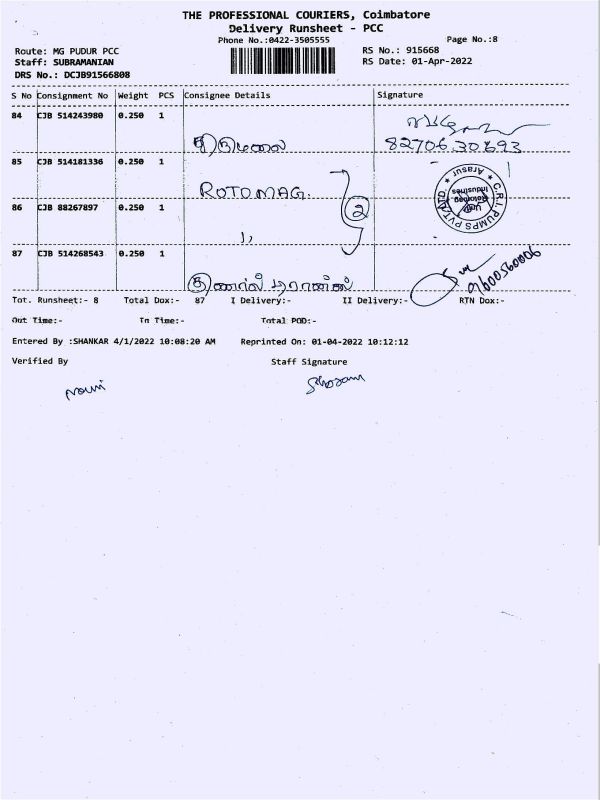 THE PROFESSIONAL COURIERS, Coimbatore
Delivery Runsheet - PCC
Phone No.:0422-3505555
Page No.:8
Route: MG PUDUR PCC
RS No.: 915668
Staff: SUBRAMANIAN
RS Date: 01-Apr-2022
DRS No.: DCJB91566808
S No Consignment No Weight PCS Consignee Details Signature
84 CJB 514243980 0.250 1
திருமலை 82706 30693
85 CJB 514181336 0.250 1
ROTOMAG.
86 CJB 88267897 0.250 1
2
C.R.I. PUMPS PVT LTD. Arasur
Unit Rotomag Industries
87 CJB 514268543 0.250 1
9600560006
Tot. Runsheet:- 8 Total Dox:- 87 I Delivery:- II Delivery:- RTN Dox:-
Out Time:- In Time:- Total POD:-
Entered By :SHANKAR 4/1/2022 10:08:20 AM Reprinted On: 01-04-2022 10:12:12
Verified By Staff Signature